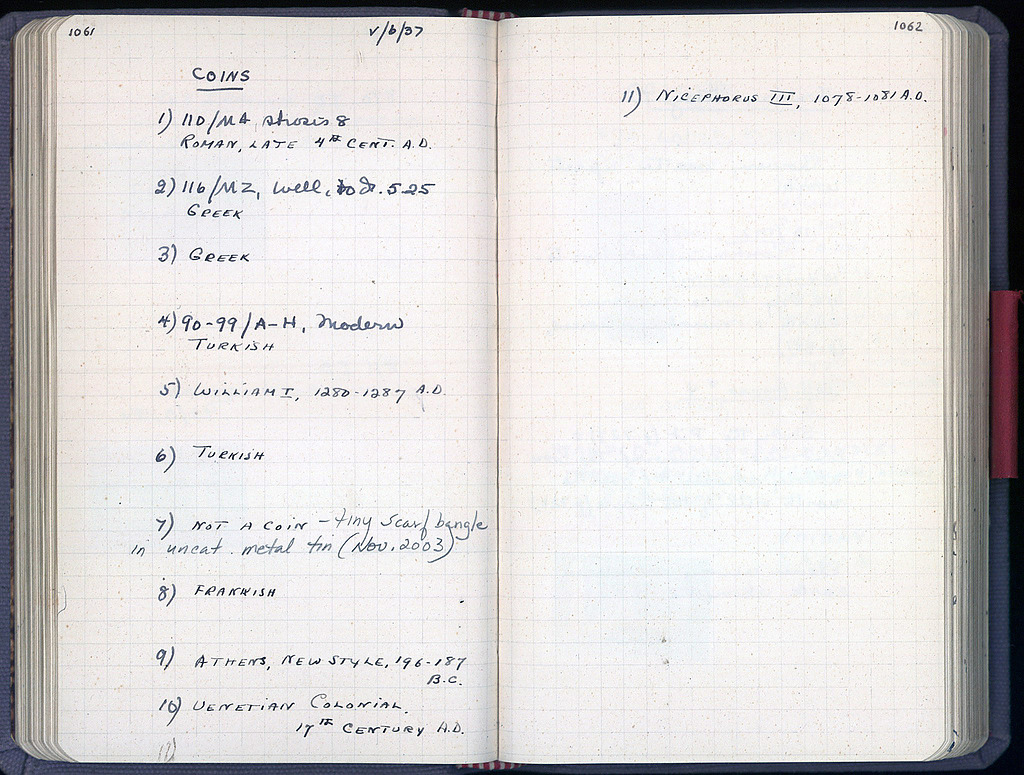 1061
V/6/37
COINS
1) 110/MA, strosis 8
ROMAN, LATE 4TH CENT. A.D.
2) 116/MZ, Well, to dr. 5.25
GREEK
3) GREEK
4) 90-99/A-H, Modern
TURKISH
5) WILLIAM I, 1280-1287 A.D.
6) TURKISH
7) NOT A COIN - tiny scarf bangle
in uncat. metal tin (Nov. 2003)
8) FRANKISH
9) ATHENS, NEW STYLE, 196-187
B.C.
10) VENETIAN COLONIAL.
17TH CENTURY A.D.
1062
11) NICEPHORUS III, 1078-1081 A.D.